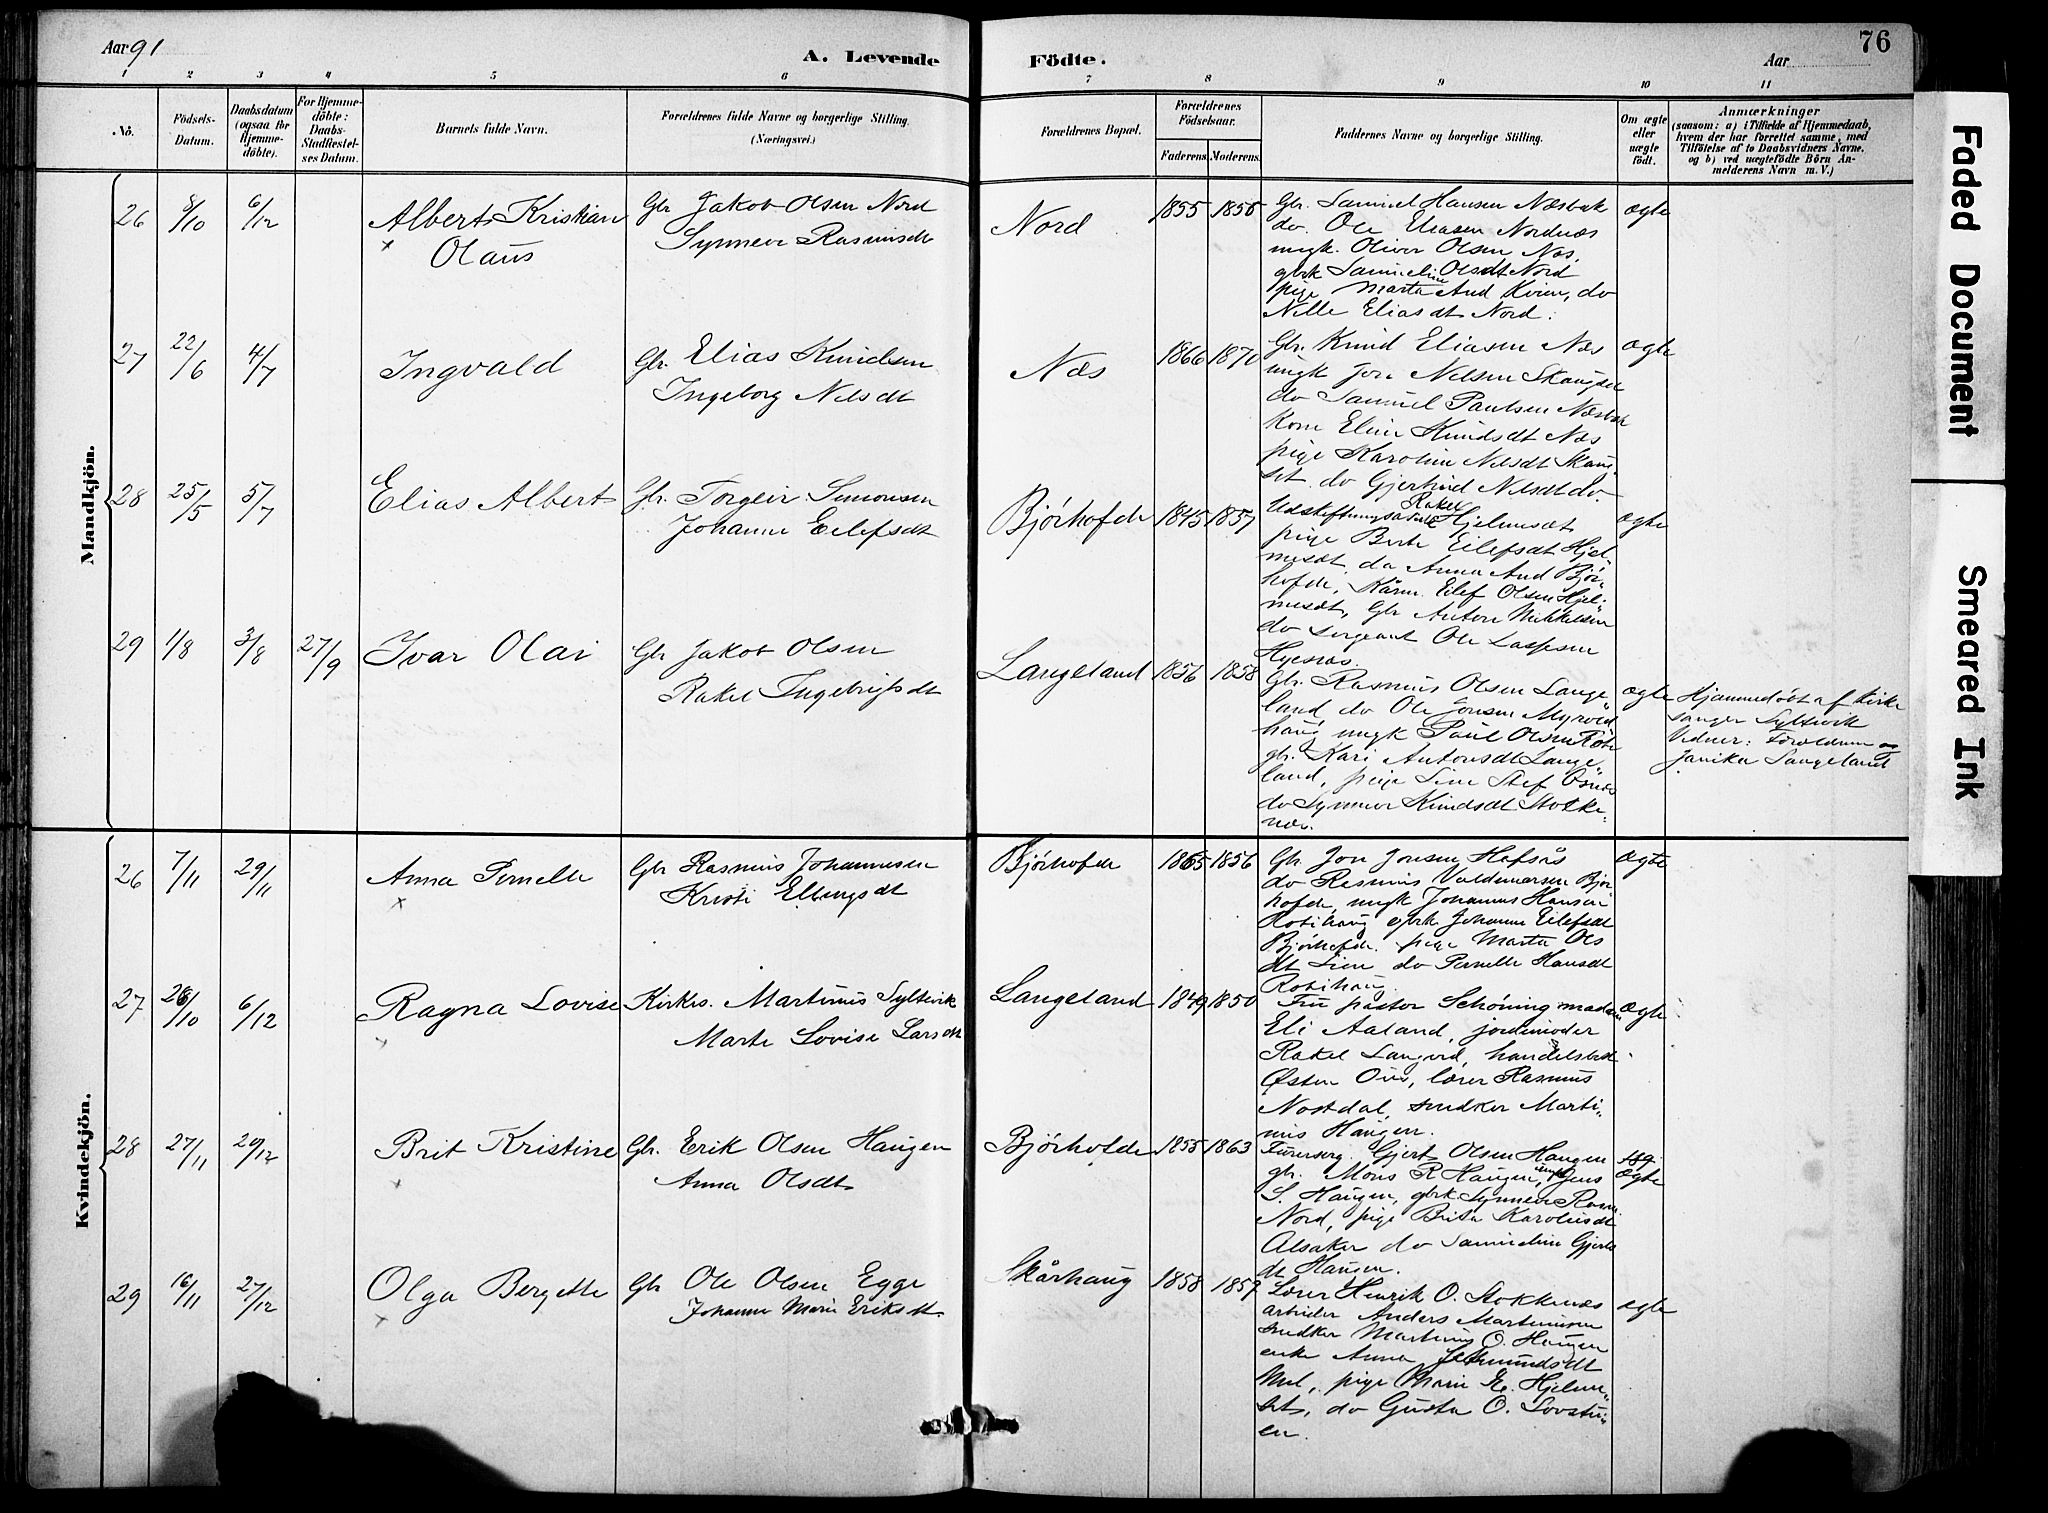 Aar 91
A. Levende Födte.
Aar
76
1 2 3 4 5 6 7 8 9 10 11
No.
Födsels-Datum.
Daabsdatum (ogsaa for Hjemme-döbte).
For Hjemme-döbte: Daabs-Stadfæstel-ses Datum.
Barnets fulde Navn.
Forældrenes fulde Navne og borgerlige Stilling. (Næringsvei.)
Forældrenes Bopæl.
Forældrenes Födselsaar.
Faderens. Moderens.
Faddernes Navne og borgerlige Stilling.
Om ægte eller uægte födt.
Anmærkninger
(saasom: a) i Tilfælde af Hjemmedaab, hvem der har forrettet samme, med Tilföielse af to Daabsvidners Navne, og b) ved uægtefödte Börn Anmelderens Navn m. V.)
Mandkjön.
26 8/10 6/12 Albert Kristian Olaus
Gbr Jakob Olsen Nord
Synneve Rasmusdt
Nord 1855 1856
Gbr. Samuel Hansen Næsbak
do. Ole Eliasen Nordnæs
ungk. Oliver Olsen Næs.
gbrk Samueline Olsdt Nord
pige Marta And Kvien, do
Nille Eliasdt Nord.
ægte
27 22/6 4/7 Ingvald
Gbr. Elias Knudsen
Ingeborg Nelsdt
Næs 1866 1870
Gbr. Knud Eliasen Næs
ungk Jon Nelsen Skaugset
do Samuel Paulsen Næsbak
Kone Eline Knudsdt Næs
pige Karoline Nelsdt Skaug-
set do Gjertrud Nelsdt do.
ægte
28 25/5 5/7 Elias Albert
Gbr. Torgeir Simonsen
Johanne Eilefsdt
Bjørhofde 1845 1857
Rakel Hjelmesæt
pige Berte Eilefsdt Hjel-
mesæt, do Anna And Bjør-
hofde, Kårm. Eilef Olsen Hjel-
mesæt, Gbr Anton Mikkelsen
do sergeant Ole Lassesen
Hyesnæs.
ægte
29 1/8 3/8 27/9 Ivar Olai
Gbr Jakob Olsen
Rakel Ingebrigtsdt
Langeland 1856 1858
Gbr. Rasmus Olsen Lange-
land do Ole Jonsen Myrvold
haug ungk Paul Olsen
gbr. Kari Antonsdt Lange-
land, pige Line Stef Osnæs
do Synneve Knudsdt Stokke-
næs.
ægte
Hjemmedøbt af Kirke
sanger Syltevik
Vidner: Forældrene og
Janika Langeland
Kvindekjön.
26 7/11 29/11 Anna Pernelle
Gbr Rasmus Johannesen
Kristi Ellingsdt
Bjørhofde 1865 1856
Gbr. Jon Jonsen Hafsås
do Rasmus Valdemarsen Bjør
hofde, ungk Johannes Hansen
Robihaug gbrk Johanne Eilefsdt
Bjørhofde. pige Marta Ols
dt Lien do Pernelle Hansdt
Robihaug.
ægte
27 28/10 6/12 Ragna Lovise
Kirkes. Martinus Syltevik
Marte Lovise Larsdt
Langeland 1849 1850
Fru pastor Schøning madam
Eli Aaland, jordemoder
Rakel Langvid, handelsbed.
Østen Oen, lærer Rasmus
Nostdal, snedker Marti-
nus Haugen.
ægte
28 27/11 29/12 Brit Kristine
Gbr. Erik Olsen Haugen
Anna Olsdt
Bjørhofde 1855 1863
Furerserg. Gjert Olsen Haugen
gbr. Mons R Haugen, ungk Jens
S. Haugen, gbrk Synneve Rasm
Nord, pige Brita Karolusdt
Alsaker do Samueline Gjerts
dt Haugen.
ægte
29 16/11 27/12 Olga Bergette
Gbr Ole Olsen Egge
Johanne Marie Eriksdt.
Skårhaug 1858 1859
Lærer Henrik O. Stokkenæs
arbeider Anders Martinusen
snedker Martinus O. Haugen
enke Anna Asmundsdt
Mel, pige Marie E. Hjelme-
set, do Gusta O. Lovstu-
en.
ægte
Faded Document
Smeared Ink